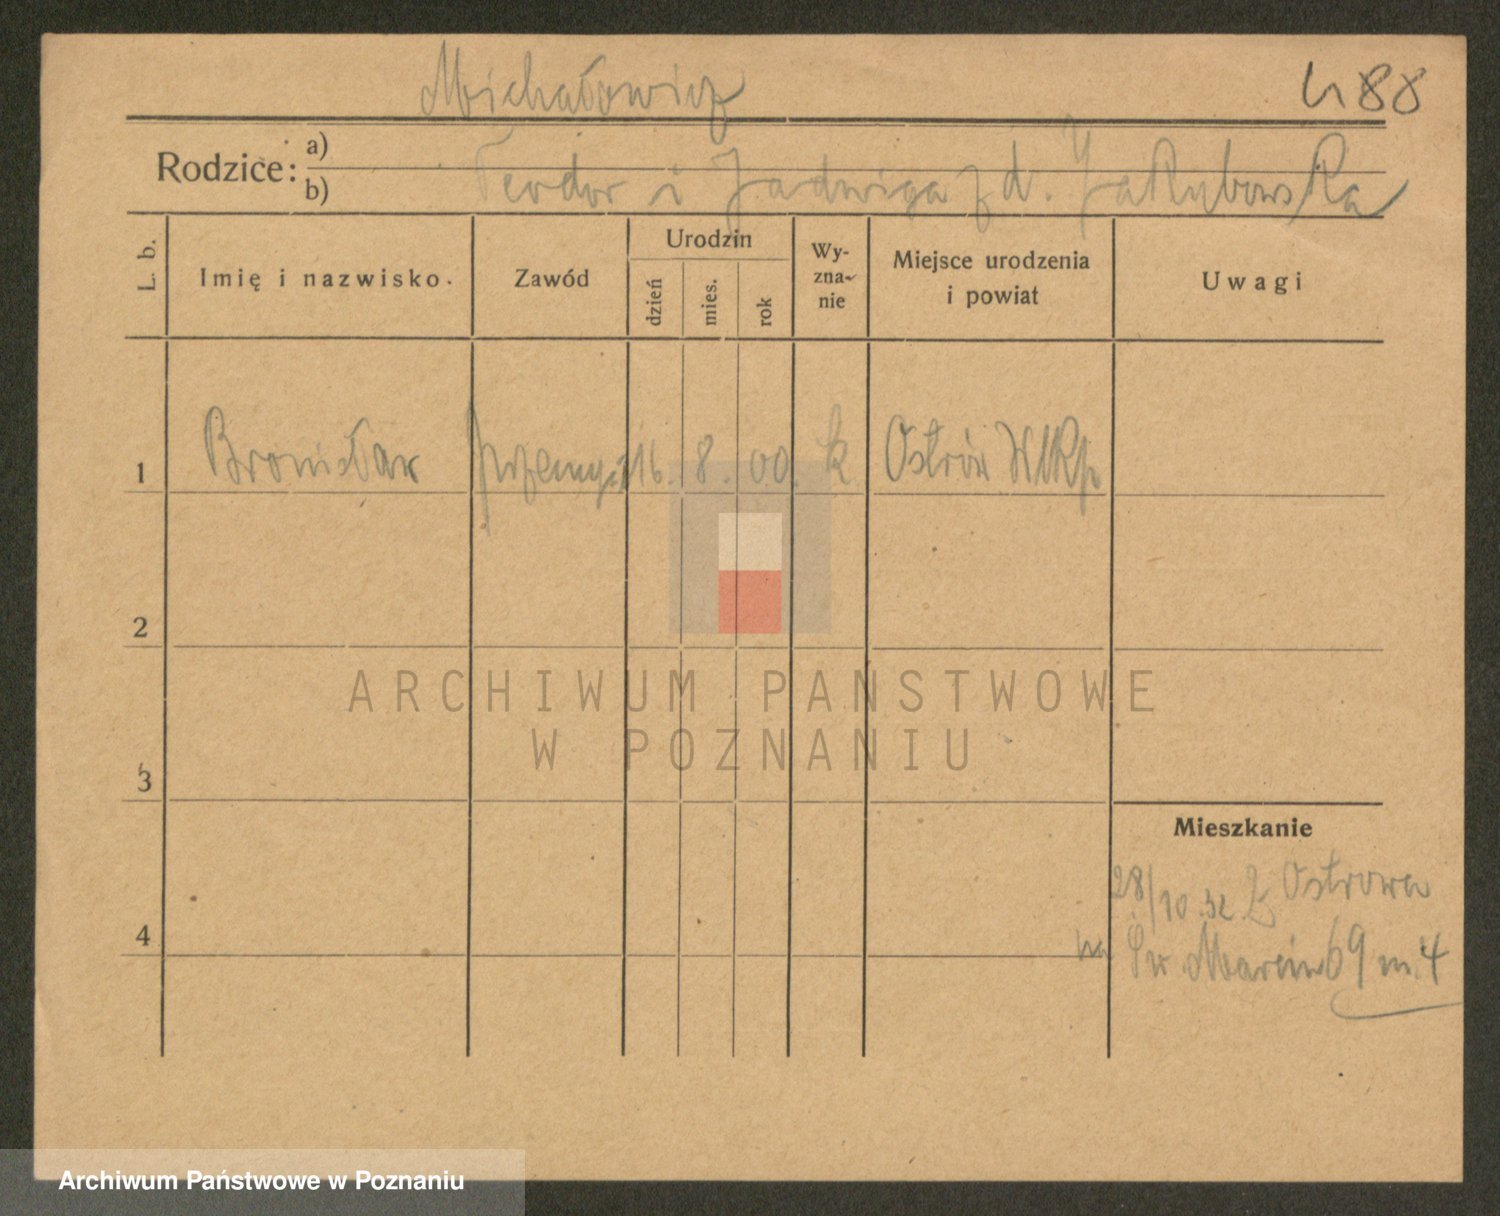 Michałowicz 488
Rodzice: a)
b) Teodor i Jadwiga z d. Jakubowska
L. b. Imię i nazwisko. Zawód Urodzin dzień mies. rok Wy-zna-nie Miejsce urodzenia i powiat Uwagi
1 Bronisław 16. 8. 00. k Ostrów Wlkp
2
ARCHIWUM PAŃSTWOWE
W POZNANIU
3
Mieszkanie
28/10.32 Z Ostrowa
4
na Św Marcin 69 m. 4
Archiwum Państwowe w Poznaniu